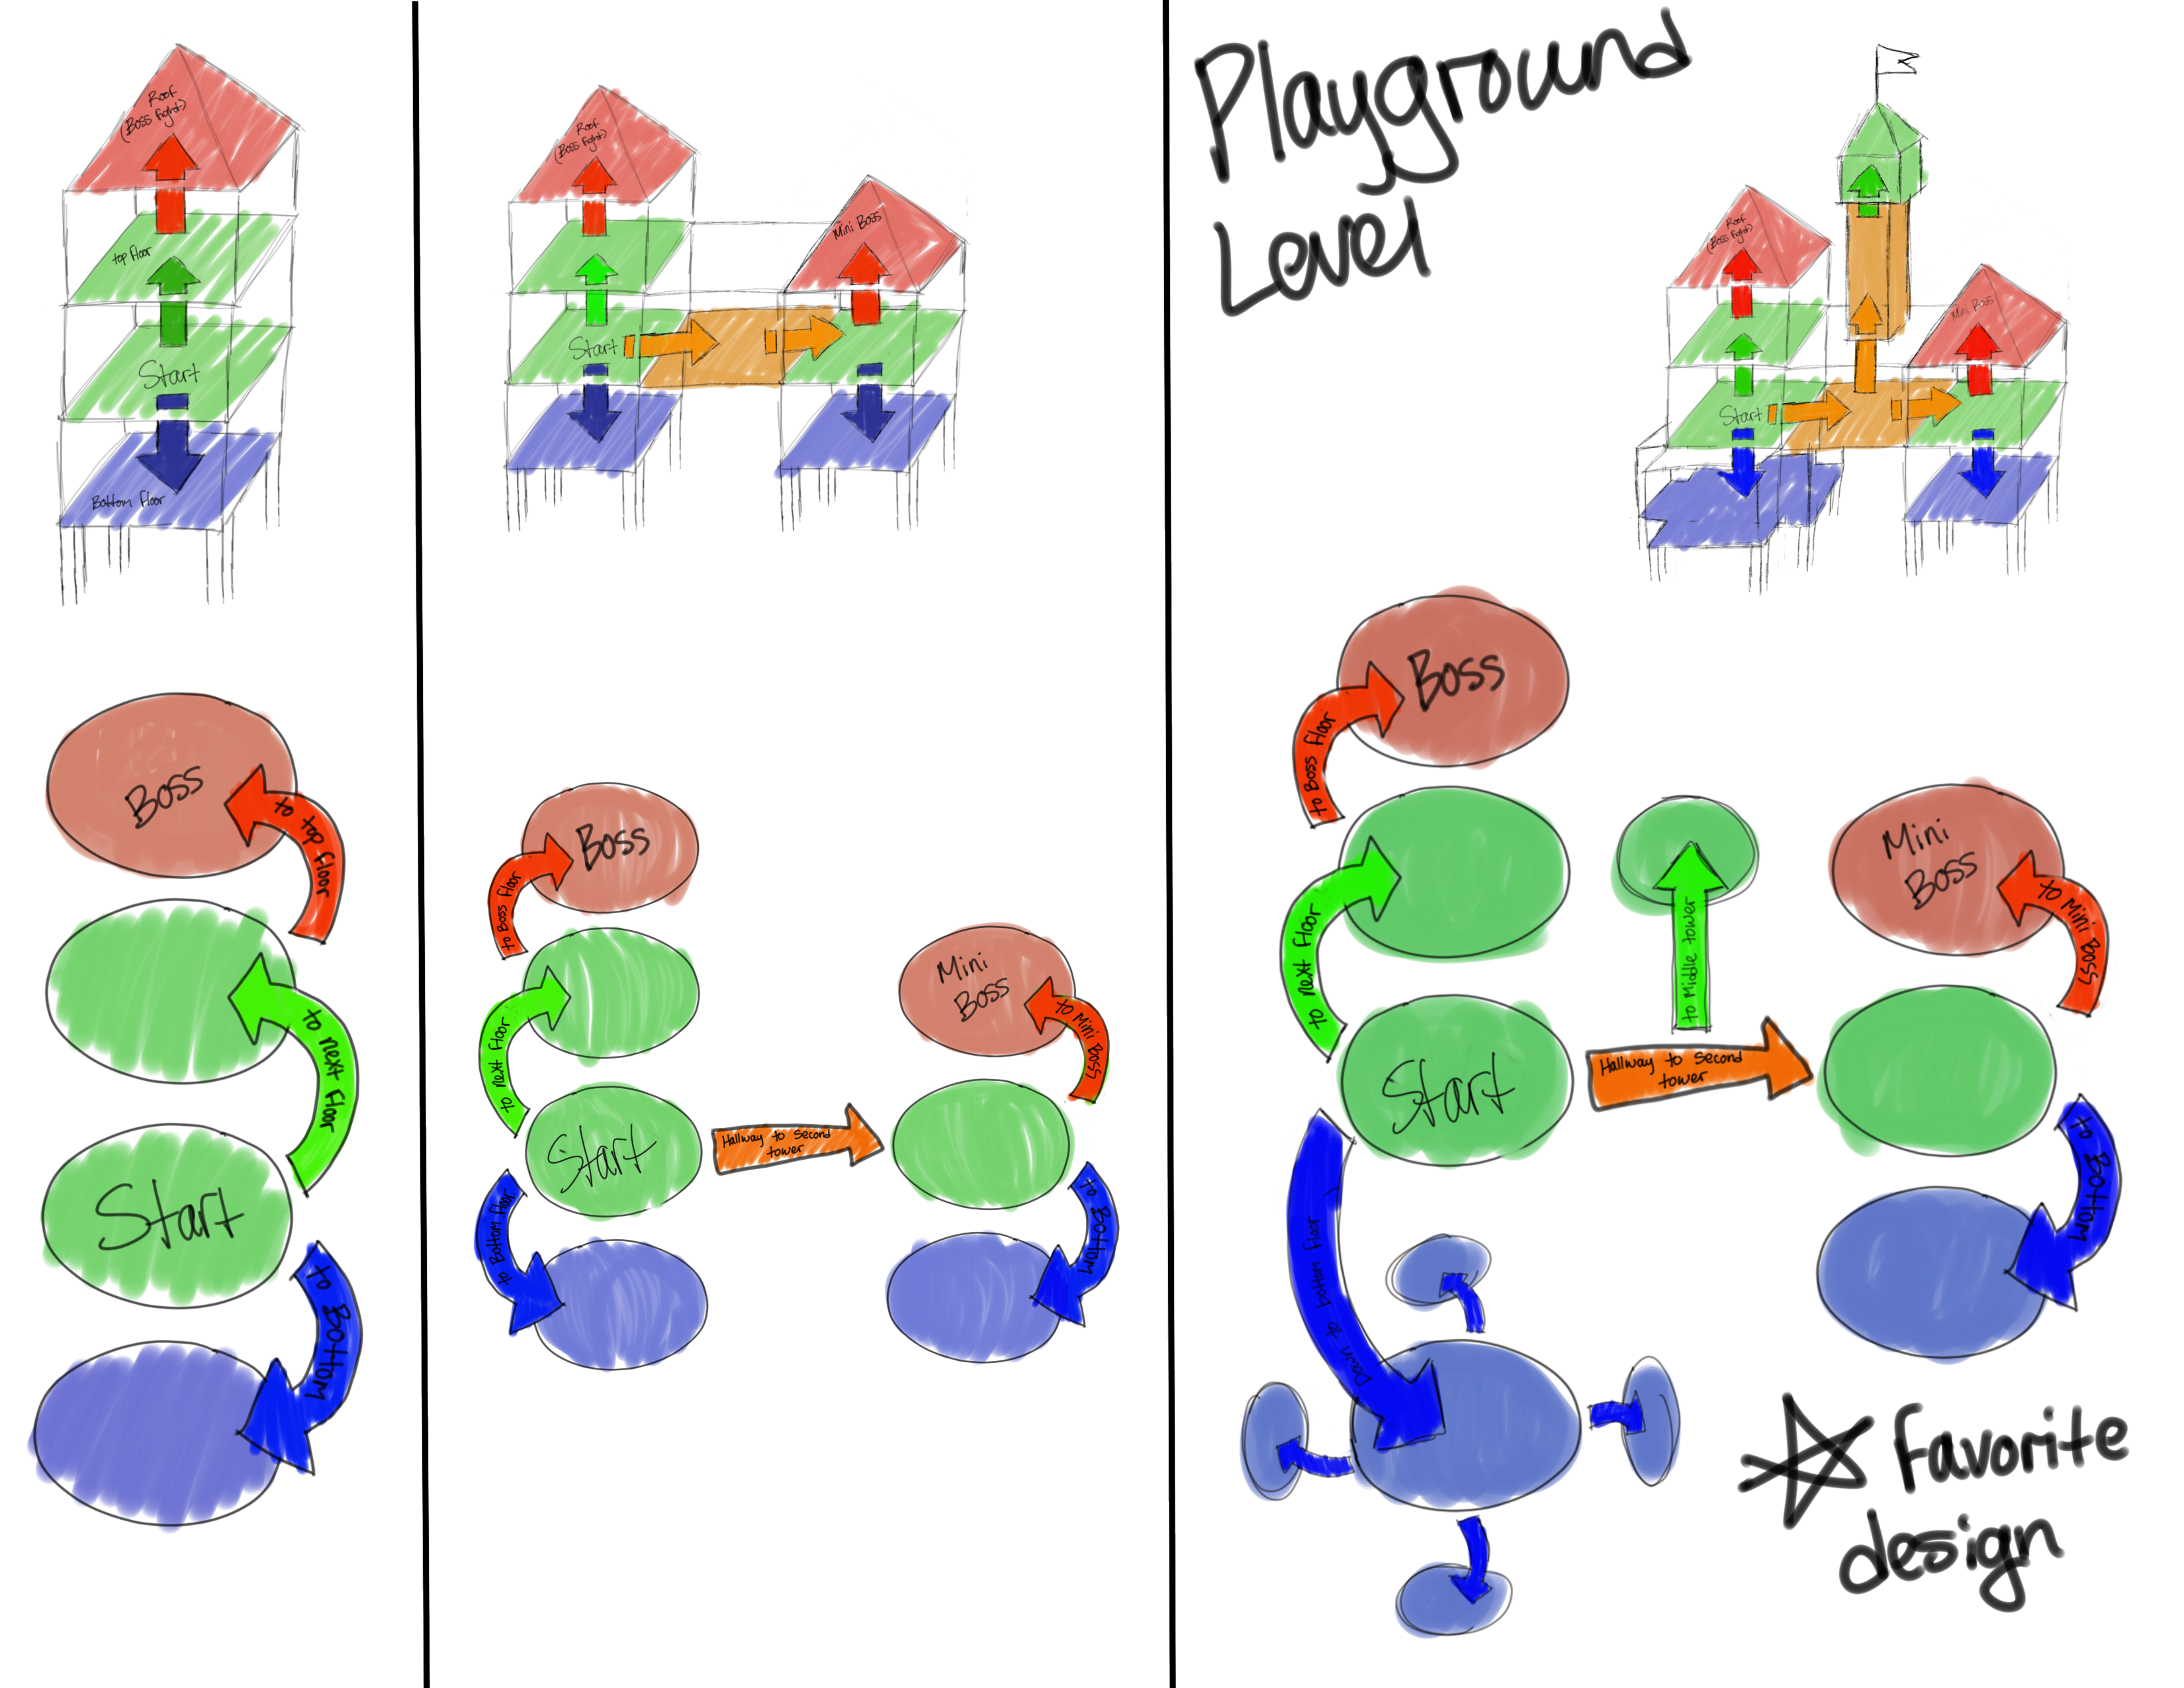 Roof
(Boss fight)
top floor
Start
Bottom floor
Boss
to top floor
to next floor
Start
to Bottom
Roof
(Boss fight)
Mini Boss
Start
Boss
to Boss floor
to next floor
Start
to Bottom floor
Hallway to Second
tower
Mini
Boss
to Mini Boss
to Bottom
Playground
Level
Roof
(Boss fight)
Mini Boss
Start
Boss
to Boss floor
to next floor
Start
to Middle tower
Hallway to Second
tower
Mini
Boss
to Mini Boss
to Bottom
Down to bottom floor
Favorite
design